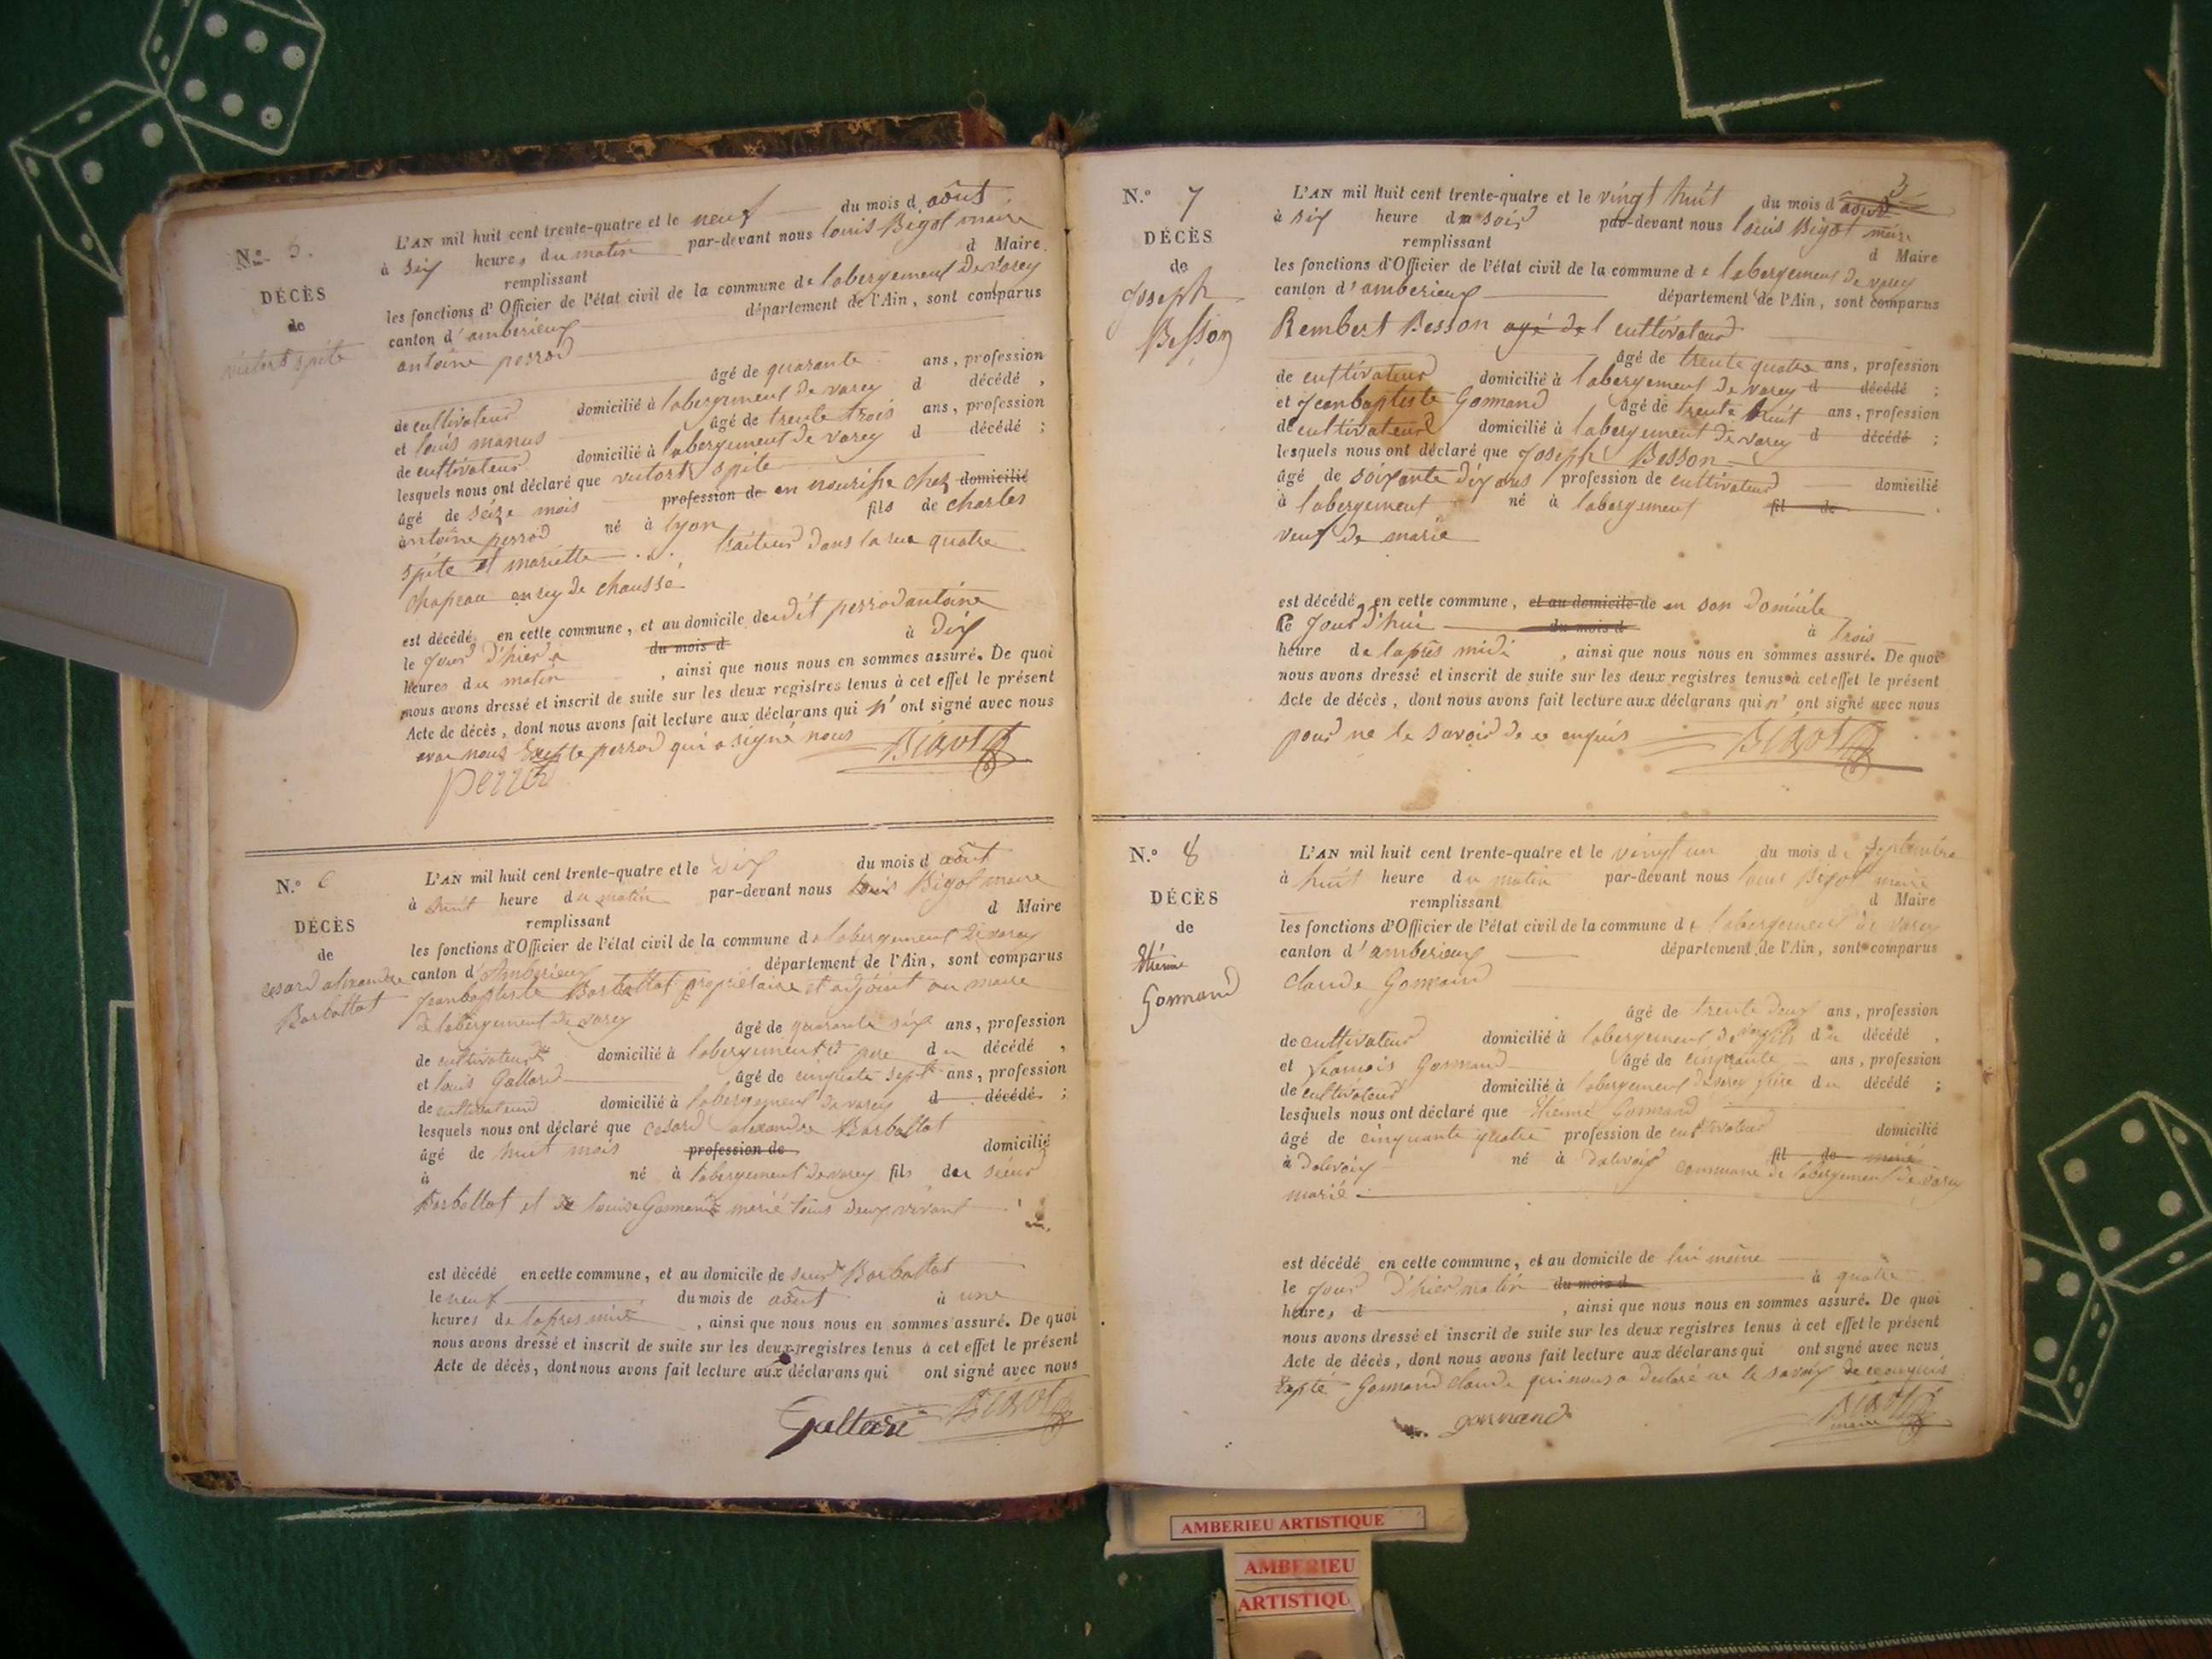 N.º 5.
DÉCÈS
de
victort spite
L'AN mil huit cent trente-quatre et le neuf du mois d août
à six heures du matin par-devant nous louis Bigot maire
remplissant d Maire
les fonctions d'Officier de l'état civil de la commune de labergement de varey
canton d'amberieux département de l'Ain, sont comparus
antoine perrod
âgé de quarante ans, profession
de cultivateur domicilié à labergement de varey d décédé,
et louis manus âgé de trente trois ans, profession
de cultivateur domicilié à labergement de varey d décédé;
lesquels nous ont déclaré que victort spite
âgé de seize mois profession de en nourisse chez domicilié
antoine perrod né à lyon fils de charles
spite et mariette traiteur dans la rue quatre
chapeau en rey de chaussé
est décédé en cette commune, et au domicile dudit perrod antoine
le jour d'hier à du mois d à dix
heures du matin, ainsi que nous nous en sommes assuré. De quoi
nous avons dressé et inscrit de suite sur les deux registres tenus à cet effet le présent
Acte de décès, dont nous avons fait lecture aux déclarans qui n'ont signé avec nous
avec nous perrod qui a signé nous Bigot
perrod
N.º 6
DÉCÈS
de
cesard alexandre
Barbollat
L'AN mil huit cent trente-quatre et le dix du mois d août
à huit heure du matin par-devant nous louis Bigot maire
remplissant d Maire
les fonctions d'Officier de l'état civil de la commune de labergement de varey
canton d'Amberieux département de l'Ain, sont comparus
jean baptiste Barbollat propriétaire et adjoint au maire
de labergement de varey âgé de quarante six ans, profession
de cultivateur domicilié à labergement et pere du décédé,
et louis Gallard âgé de cinquante sept ans, profession
de cultivateur domicilié à labergement de varey d décédé;
lesquels nous ont déclaré que cesard alexandre Barbollat
âgé de huit mois profession de domicilié
à né à labergement de varey fils du sieur
Barbollat et de louise Gormand marié tous deux vivant
est décédé en cette commune, et au domicile de sieur Barbollat
le neuf du mois de août à une
heures de lapres midi, ainsi que nous nous en sommes assuré. De quoi
nous avons dressé et inscrit de suite sur les deux registres tenus à cet effet le présent
Acte de décès, dont nous avons fait lecture aux déclarans qui ont signé avec nous
Gallard Bigot
3
N.º 7
DÉCÈS
de
Joseph
Besson
L'AN mil huit cent trente-quatre et le vingt huit du mois d août
à six heure du soir par-devant nous louis Bigot maire
remplissant d Maire
les fonctions d'Officier de l'état civil de la commune de labergement de varey
canton d'amberieux département de l'Ain, sont comparus
Rembert Besson agé de cultivateur
âgé de trente quatre ans, profession
de cultivateur domicilié à labergement de varey d décédé;
et jean baptiste Gormand âgé de trente huit ans, profession
de cultivateur domicilié à labergement de varey d décédé;
lesquels nous ont déclaré que Joseph Besson
âgé de soixante dix ans profession de cultivateur domicilié
à labergement né à labergement fil de
veuf de marie
est décédé en cette commune, et au domicile de en son domicile
le jour d'hui du mois d à trois
heure de lapres midi, ainsi que nous nous en sommes assuré. De quoi
nous avons dressé et inscrit de suite sur les deux registres tenus à cet effet le présent
Acte de décès, dont nous avons fait lecture aux déclarans qui n'ont signé avec nous
pour ne le savoir de ce enquis Bigot
N.º 8
DÉCÈS
de
Etienne
Gormand
L'AN mil huit cent trente-quatre et le vingt un du mois de septembre
à huit heure du matin par-devant nous louis Bigot maire
remplissant d Maire
les fonctions d'Officier de l'état civil de la commune de labergement de varey
canton d'amberieux département de l'Ain, sont comparus
claude Gormand
âgé de trente deux ans, profession
de cultivateur domicilié à labergement de varey fils du décédé,
et francois Gormand âgé de cinquante ans, profession
de cultivateur domicilié à labergement de varey frere du décédé;
lesquels nous ont déclaré que Etienne Gormand
âgé de cinquante quatre profession de cultivateur domicilié
à dalivoix né à dalivoix commune de labergement de varey fil de marié
marié
est décédé en cette commune, et au domicile de lui même
le jour d'hier matin du mois d à quatre
heures d, ainsi que nous nous en sommes assuré. De quoi
nous avons dressé et inscrit de suite sur les deux registres tenus à cet effet le présent
Acte de décès, dont nous avons fait lecture aux déclarans qui ont signé avec nous
Gormand claude qui nous a declaré ne le savoir de ce enquis
gormand Bigot
maire
AMBERIEU ARTISTIQUE
AMBERIEU
ARTISTIQU